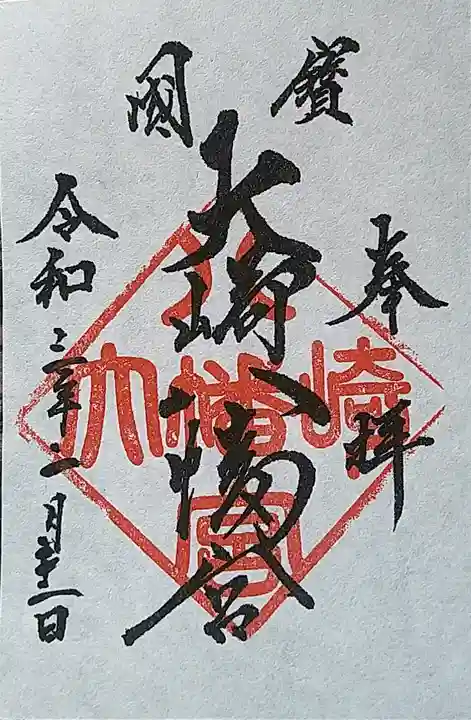 國寳
奉拝
大崎八幡宮
令和三年二月廿一日
大崎八幡宮